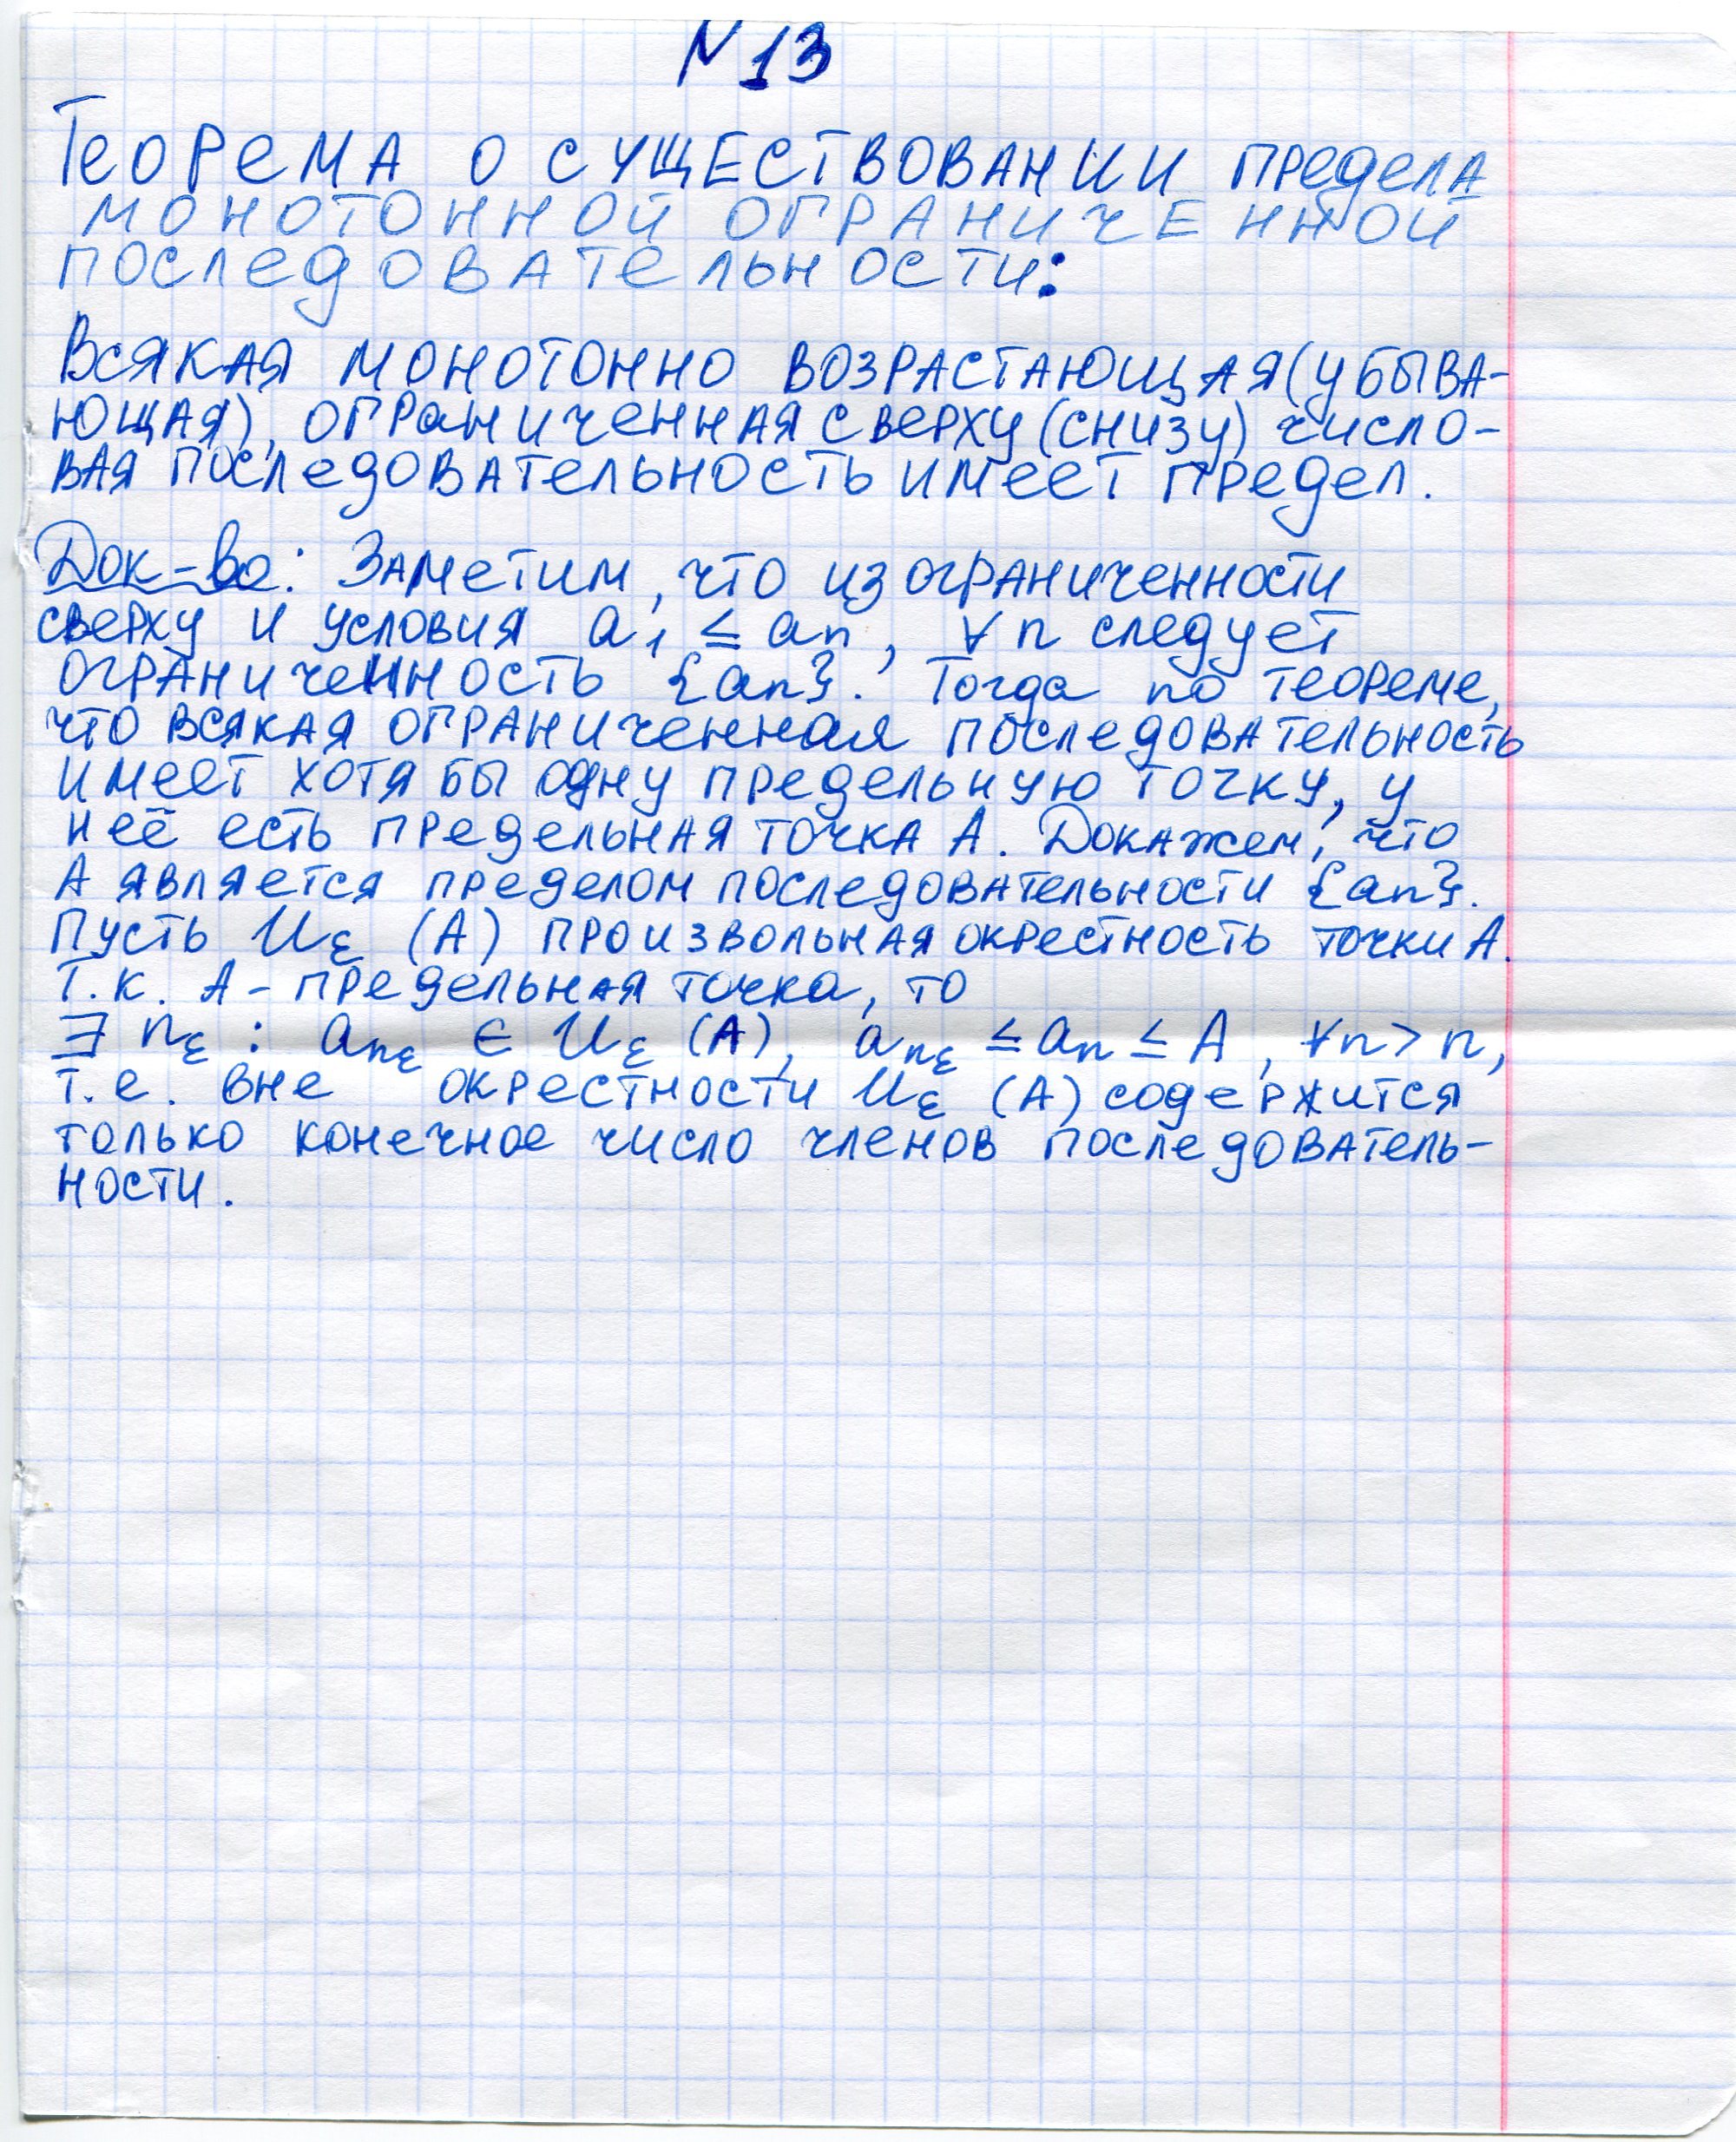 N 13
Теорема о существовании предела
монотонной ограниченной
последовательности:
Всякая монотонно возрастающая (убыва-
ющая), ограниченная сверху (снизу) число-
вая последовательность имеет предел.
Док-во: Заметим, что из ограниченности
сверху и условия a₁ ≤ aₙ, ∀n следует
ограниченность {aₙ}. Тогда по теореме,
что всякая ограниченная последовательность
имеет хотя бы одну предельную точку, у
неё есть предельная точка A. Докажем, что
A является пределом последовательности {aₙ}.
Пусть U_ε (A) произвольная окрестность точки A.
Т.к. A - предельная точка, то
∃ n_ε : a_{n_ε} ∈ U_ε (A), a_{n_ε} ≤ aₙ ≤ A, ∀n > n,
т.е. вне окрестности U_ε (A) содержится
только конечное число членов последователь-
ности.